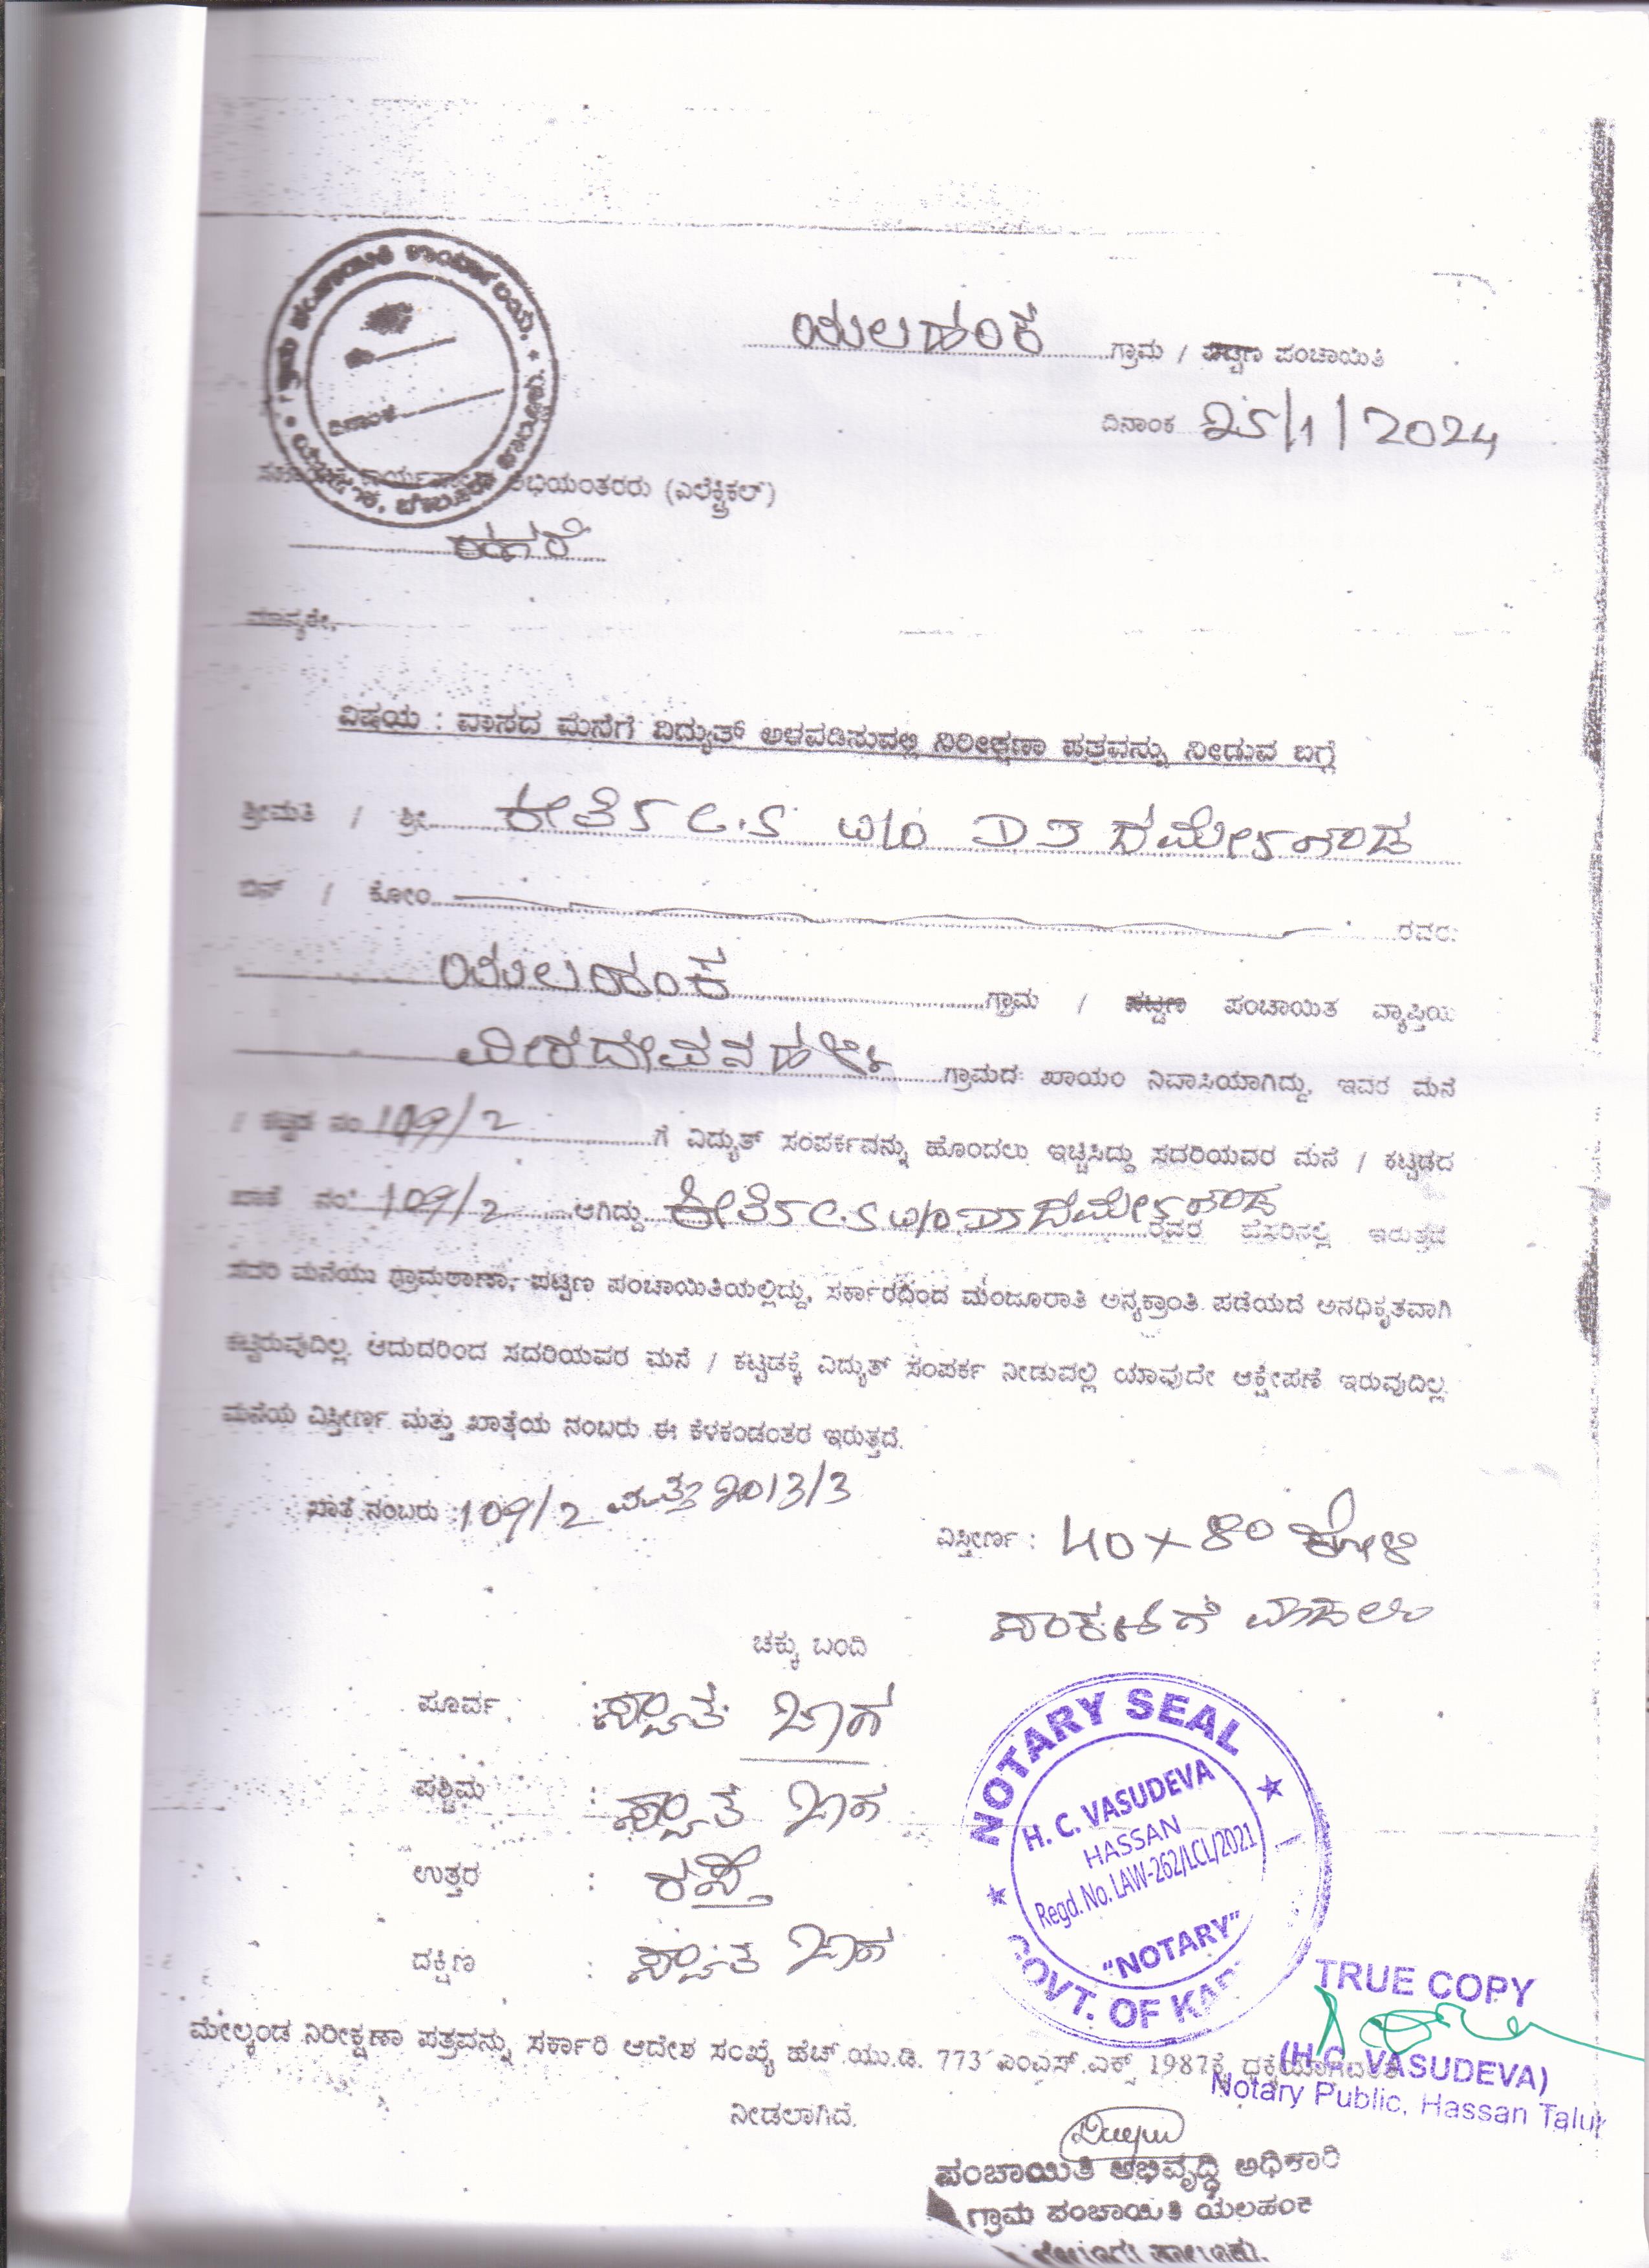 ಯಲಹಂಕ ಗ್ರಾಮ / ಪಟ್ಟಣ ಪಂಚಾಯಿತಿ
ದಿನಾಂಕ 25/1/2024
ದಿನಾಂಕ
ಅಭಿಯಂತರರು (ಎಲೆಕ್ಟ್ರಿಕಲ್)
ಮಾನ್ಯರೇ,
ವಿಷಯ : ವಾಸದ ಮನೆಗೆ ವಿದ್ಯುತ್ ಅಳವಡಿಸುವಲ್ಲಿ ನಿರೀಕ್ಷಣಾ ಪತ್ರವನ್ನು ನೀಡುವ ಬಗ್ಗೆ
ಶ್ರೀಮತಿ / ಶ್ರೀ ಕೀರ್ತಿ C.S W/O D J ಧರ್ಮೇಗೌಡ
ಬಿನ್ / ಕೋಂ ರವರು
ಯಲಹಂಕ ಗ್ರಾಮ / ಪಟ್ಟಣ ಪಂಚಾಯಿತ ವ್ಯಾಪ್ತಿಯ
ವೀರದೇವನಹಳ್ಳಿ ಗ್ರಾಮದ ಖಾಯಂ ನಿವಾಸಿಯಾಗಿದ್ದು, ಇವರ ಮನೆ
/ ಕಟ್ಟಡ ನಂ 109/2 ಗೆ ವಿದ್ಯುತ್ ಸಂಪರ್ಕವನ್ನು ಹೊಂದಲು ಇಚ್ಚಿಸಿದ್ದು ಸದರಿಯವರ ಮನೆ / ಕಟ್ಟಡದ
ಖಾತೆ ನಂ 109/2 ಆಗಿದ್ದು ಕೀರ್ತಿ C.S W/O D J ಧರ್ಮೇಗೌಡ ರವರ ಹೆಸರಿನಲ್ಲಿ ಇರುತ್ತದೆ
ಸದರಿ ಮನೆಯು ಗ್ರಾಮಠಾಣಾ, ಪಟ್ಟಣ ಪಂಚಾಯಿತಿಯಲ್ಲಿದ್ದು, ಸರ್ಕಾರದಿಂದ ಮಂಜೂರಾತಿ ಅನ್ಯಕ್ರಾಂತಿ ಪಡೆಯದೆ ಅನಧಿಕೃತವಾಗಿ
ಕಟ್ಟಿರುವುದಿಲ್ಲ. ಆದುದರಿಂದ ಸದರಿಯವರ ಮನೆ / ಕಟ್ಟಡಕ್ಕೆ ವಿದ್ಯುತ್ ಸಂಪರ್ಕ ನೀಡುವಲ್ಲಿ ಯಾವುದೇ ಆಕ್ಷೇಪಣೆ ಇರುವುದಿಲ್ಲ.
ಮನೆಯ ವಿಸ್ತೀರ್ಣ ಮತ್ತು ಖಾತೆಯ ನಂಬರು ಈ ಕೆಳಕಂಡಂತರ ಇರುತ್ತದೆ.
ಖಾತೆ ನಂಬರು : 109/2 ಮತ್ತು 2013/3
ವಿಸ್ತೀರ್ಣ : 40 x 80 ಕೋಳಿ
ಚಕ್ಕು ಬಂದಿ
ಪೂರ್ವ : ಸ್ವಂತ ಜಾಗ
ಪಶ್ಚಿಮ : ಸ್ವಂತ ಜಾಗ
ಉತ್ತರ : ರಸ್ತೆ
ದಕ್ಷಿಣ : ಸ್ವಂತ ಜಾಗ
NOTARY SEAL
H. C. VASUDEVA
HASSAN
Regd. No. LAW-262/LCL/2021
"NOTARY"
GOVT. OF KAR
TRUE COPY
(H.C. VASUDEVA)
Notary Public, Hassan Taluk
ಮೇಲ್ಕಂಡ ನಿರೀಕ್ಷಣಾ ಪತ್ರವನ್ನು ಸರ್ಕಾರಿ ಆದೇಶ ಸಂಖ್ಯೆ ಹೆಚ್.ಯು.ಡಿ. 773 ಎಂಎಸ್.ಎಕ್ಸ್ 1987ಕ್ಕೆ
ನೀಡಲಾಗಿದೆ.
ಪಂಚಾಯಿತಿ ಅಭಿವೃದ್ಧಿ ಅಧಿಕಾರಿ
ಗ್ರಾಮ ಪಂಚಾಯಿತಿ ಯಲಹಂಕ